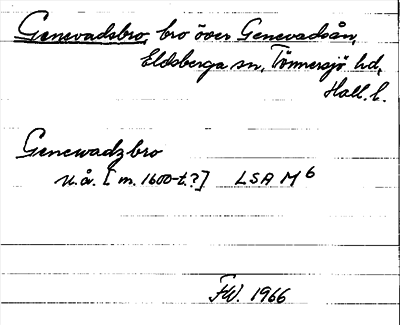 Genevadsbro, bro över Genevadsån,
Eldsberga sn, Tönnersjö hd,
Hall. l.
Genewadzbro
u.å. [m. 1600-t.?] LSA M 6
F.W. 1966